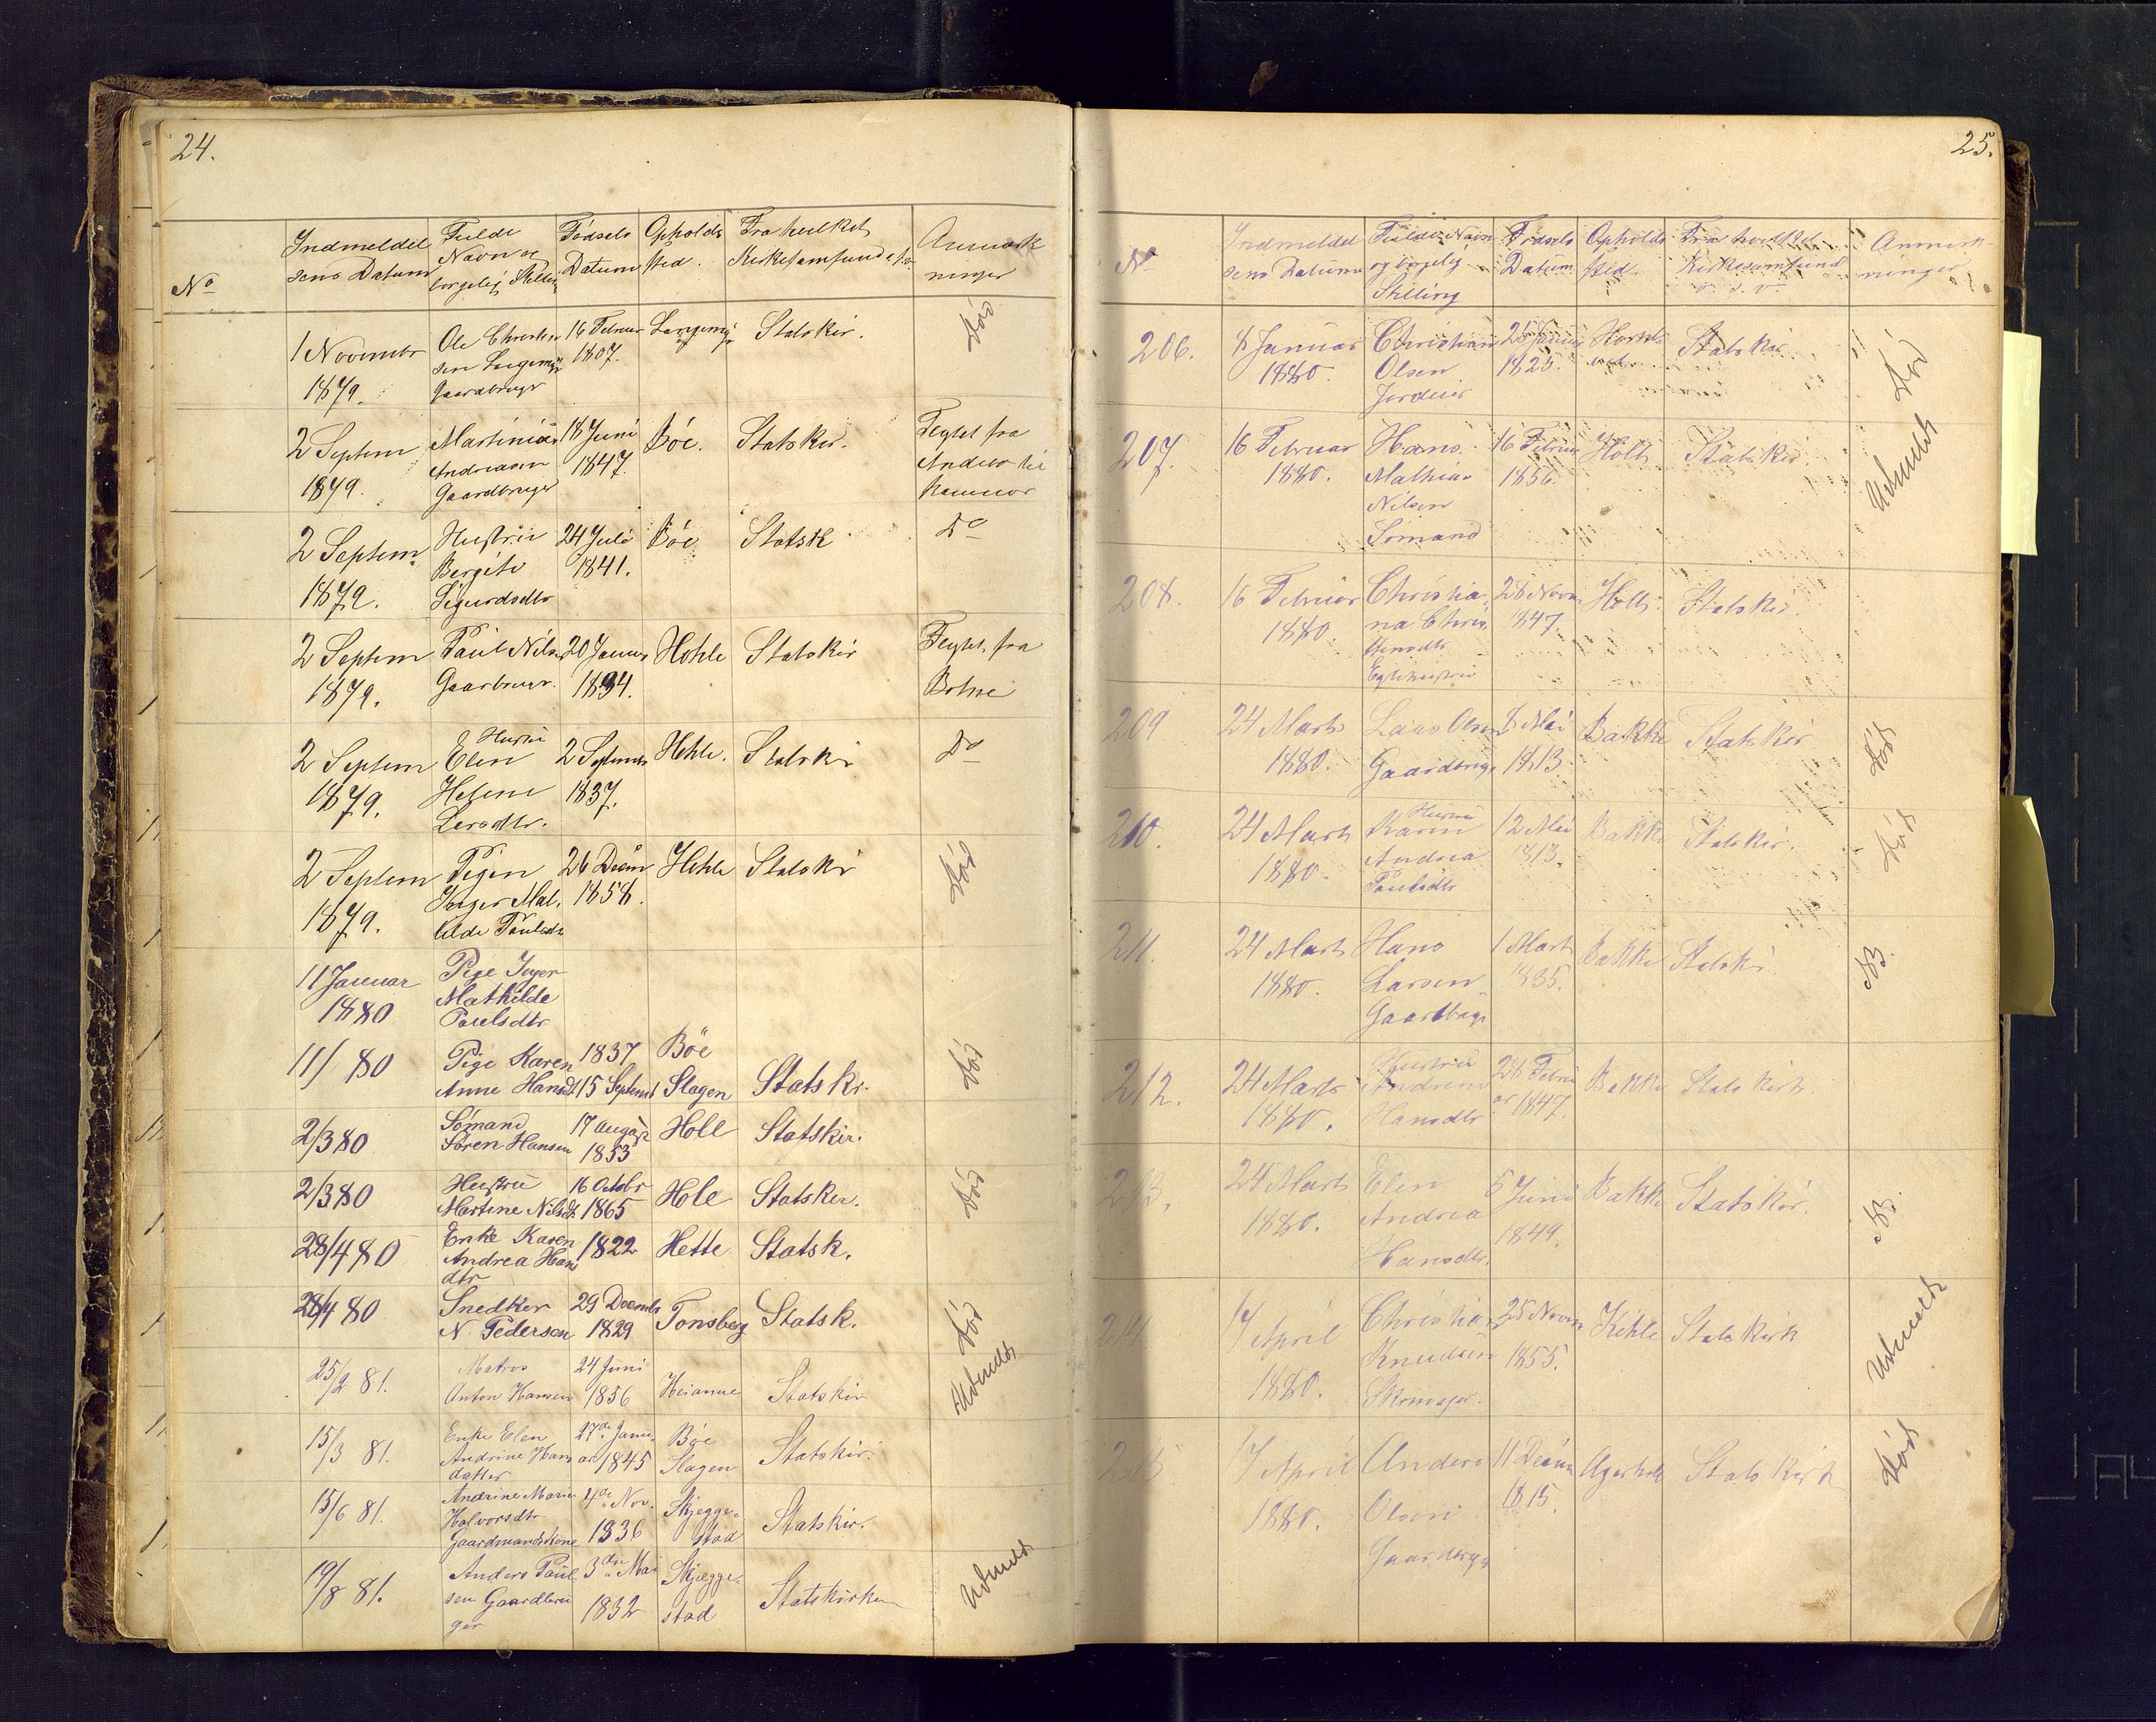 24.
No
Indmeldel
sens Datum
Fulde
Navn og
borgelig Stilling
Fødsels
Datum
Opholds
sted.
Fra hvilket
Kirkesamfund
Anmærk
ninger
1 Novembr
1879.
Ole Christen
sen
Gaardbruger
16 Februar
1807.
Statskir.
Død
2 Septem
1879.
Martinius
Andreasen
Gaardbruger
18 Juni
1847.
Bøe.
Statskir.
Flyttet fra
2 Septem.
1879.
Hustru
Bergite
Sigurdsdtr
24 Juli
1841.
Bøe
Statsk
Do
2 Septem
1879.
Paul Nilsen
Gaarbruger.
20 Januar
1834.
Hehle
Statskir
Flyttet fra
Botne
2 Septem
1879.
Hustru
Elen
Helene
Larsdtr.
2 Septembr
1837.
Hehle.
Statskir
Do
2 Septem
1879.
Pigen
Inger Mat.
tilde Paulsdtr
26 Decem
1858.
Hehle
Statskir
Død
11 Januar
1880
Pige Inger
Mathilde
Paulsdtr
11/1 80
Pige Karen
Anne Hansdt
1837
15 Septembr
Bøe
Slagen
Statskr.
Død
2/3 80
Sømand
Søren Hansen
17 August
1853
Holt
Statskir.
2/3 80
Hustru
Martine Nilsdt.
16 Octobr
1865
Hole
Statskir.
Død
28/4 80
Enke Karen
Andrea Hans
dtr
1822
Hette
Statsk.
28/4 80
Snedker
N. Pedersen
29 Decembr
1829
Tønsberg
Statsk.
Død
25/2 81.
Matros
Anton Hansen
24 Juni
1856
Statskir
Udmeldt
15/3 81.
Enke Elen
Andrine Hans
datter
27de Janu-
ar 1845
Bøe
Slagen
Statskir.
15/6 81.
Andrine Marie
Halvorsdtr
Gaardmandskone
4de Nov.
1836
Skjegge-
stad
Statskir.
19/8 81.
Anders Paul
sen Gaardbru
ger
3die Mai
1832
Skjegge-
stad
Statskirken
Udmeldt
25.
No
Indmeldel
sens Datum
Fulde Navn
og borgelig
Stilling
Fødsels
Datum
Opholds
sted.
Fra hvilket
Kirkesamfund
o. s. v.
Anmærk-
ninger
206.
8 Januar
1880.
Christian
Olsen
Jordeier
25 Januar
1825.
Statskir.
Død
207.
16 Februar
1880.
Hans
Mathias
Nilsen
Sømand
16 Februar
1856.
Holt
Statskir.
Udmeldt
208.
16 Februar
1880.
Christia
na Chris
tensdtr
28 Novm
1847.
Holt
Statskir.
209
24 Marts
1880.
Lars Olsen
Gaardbrug.
8 Mai
1813
Bakke
Statskir
Død
210.
24 Marts
1880.
Hustru
Karen
Andrea
Paulsdtr
12 Mai
1813.
Bakke
Statskir.
Død
211.
24 Marts
1880.
Hans
Larsen
Gaardbrugr
1 Marts
1835.
Bakke
Statski
NB.
212.
24 Marts
1880.
Hustru
Andrine
Hansdtr
28 Febru
ar 1847.
Bakke
Stats kirk.
213.
24 Marts
1880.
Elen
Andrea
Hansdtr.
5 Juni
1849.
Bakke
Statskir.
NB.
214.
17 April
1880.
Christian
Knudsen
Skomager.
25 Novm
1855.
Kihle
Stats kirk
Udmeldt
215
17 April
1880.
Anders
Olsen
Gaardbrgr
11 Decem
1815.
Agerholt
Stats kirk
Død